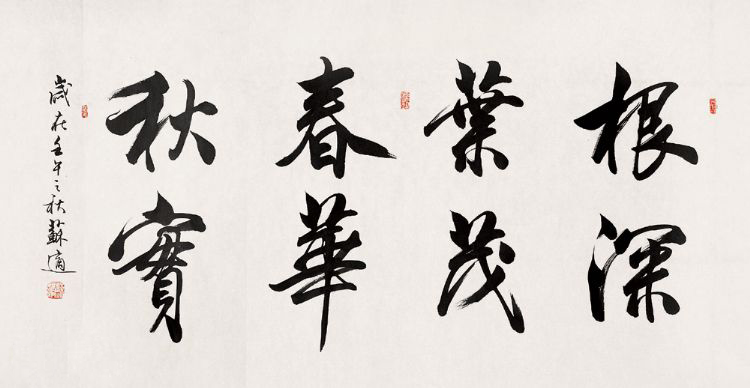 根深
葉茂
春華
秋實
歲在壬午之秋蘇適